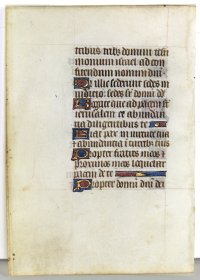 tribus tribus domini testi
monium israel ad con
fitendum nomini dni
Quia illic sederunt sedes in
iudicio: sedes sr̃ domũ dd
Rogate que ad pacem sũt
ierusalem et abundan
tia diligentibus te
Fiat pax in virtute tua
et abundantia i turribꝰ tuis
Propter fratres meos et
proximos meos loquebar
pacem de te
Propter domũ dni dei